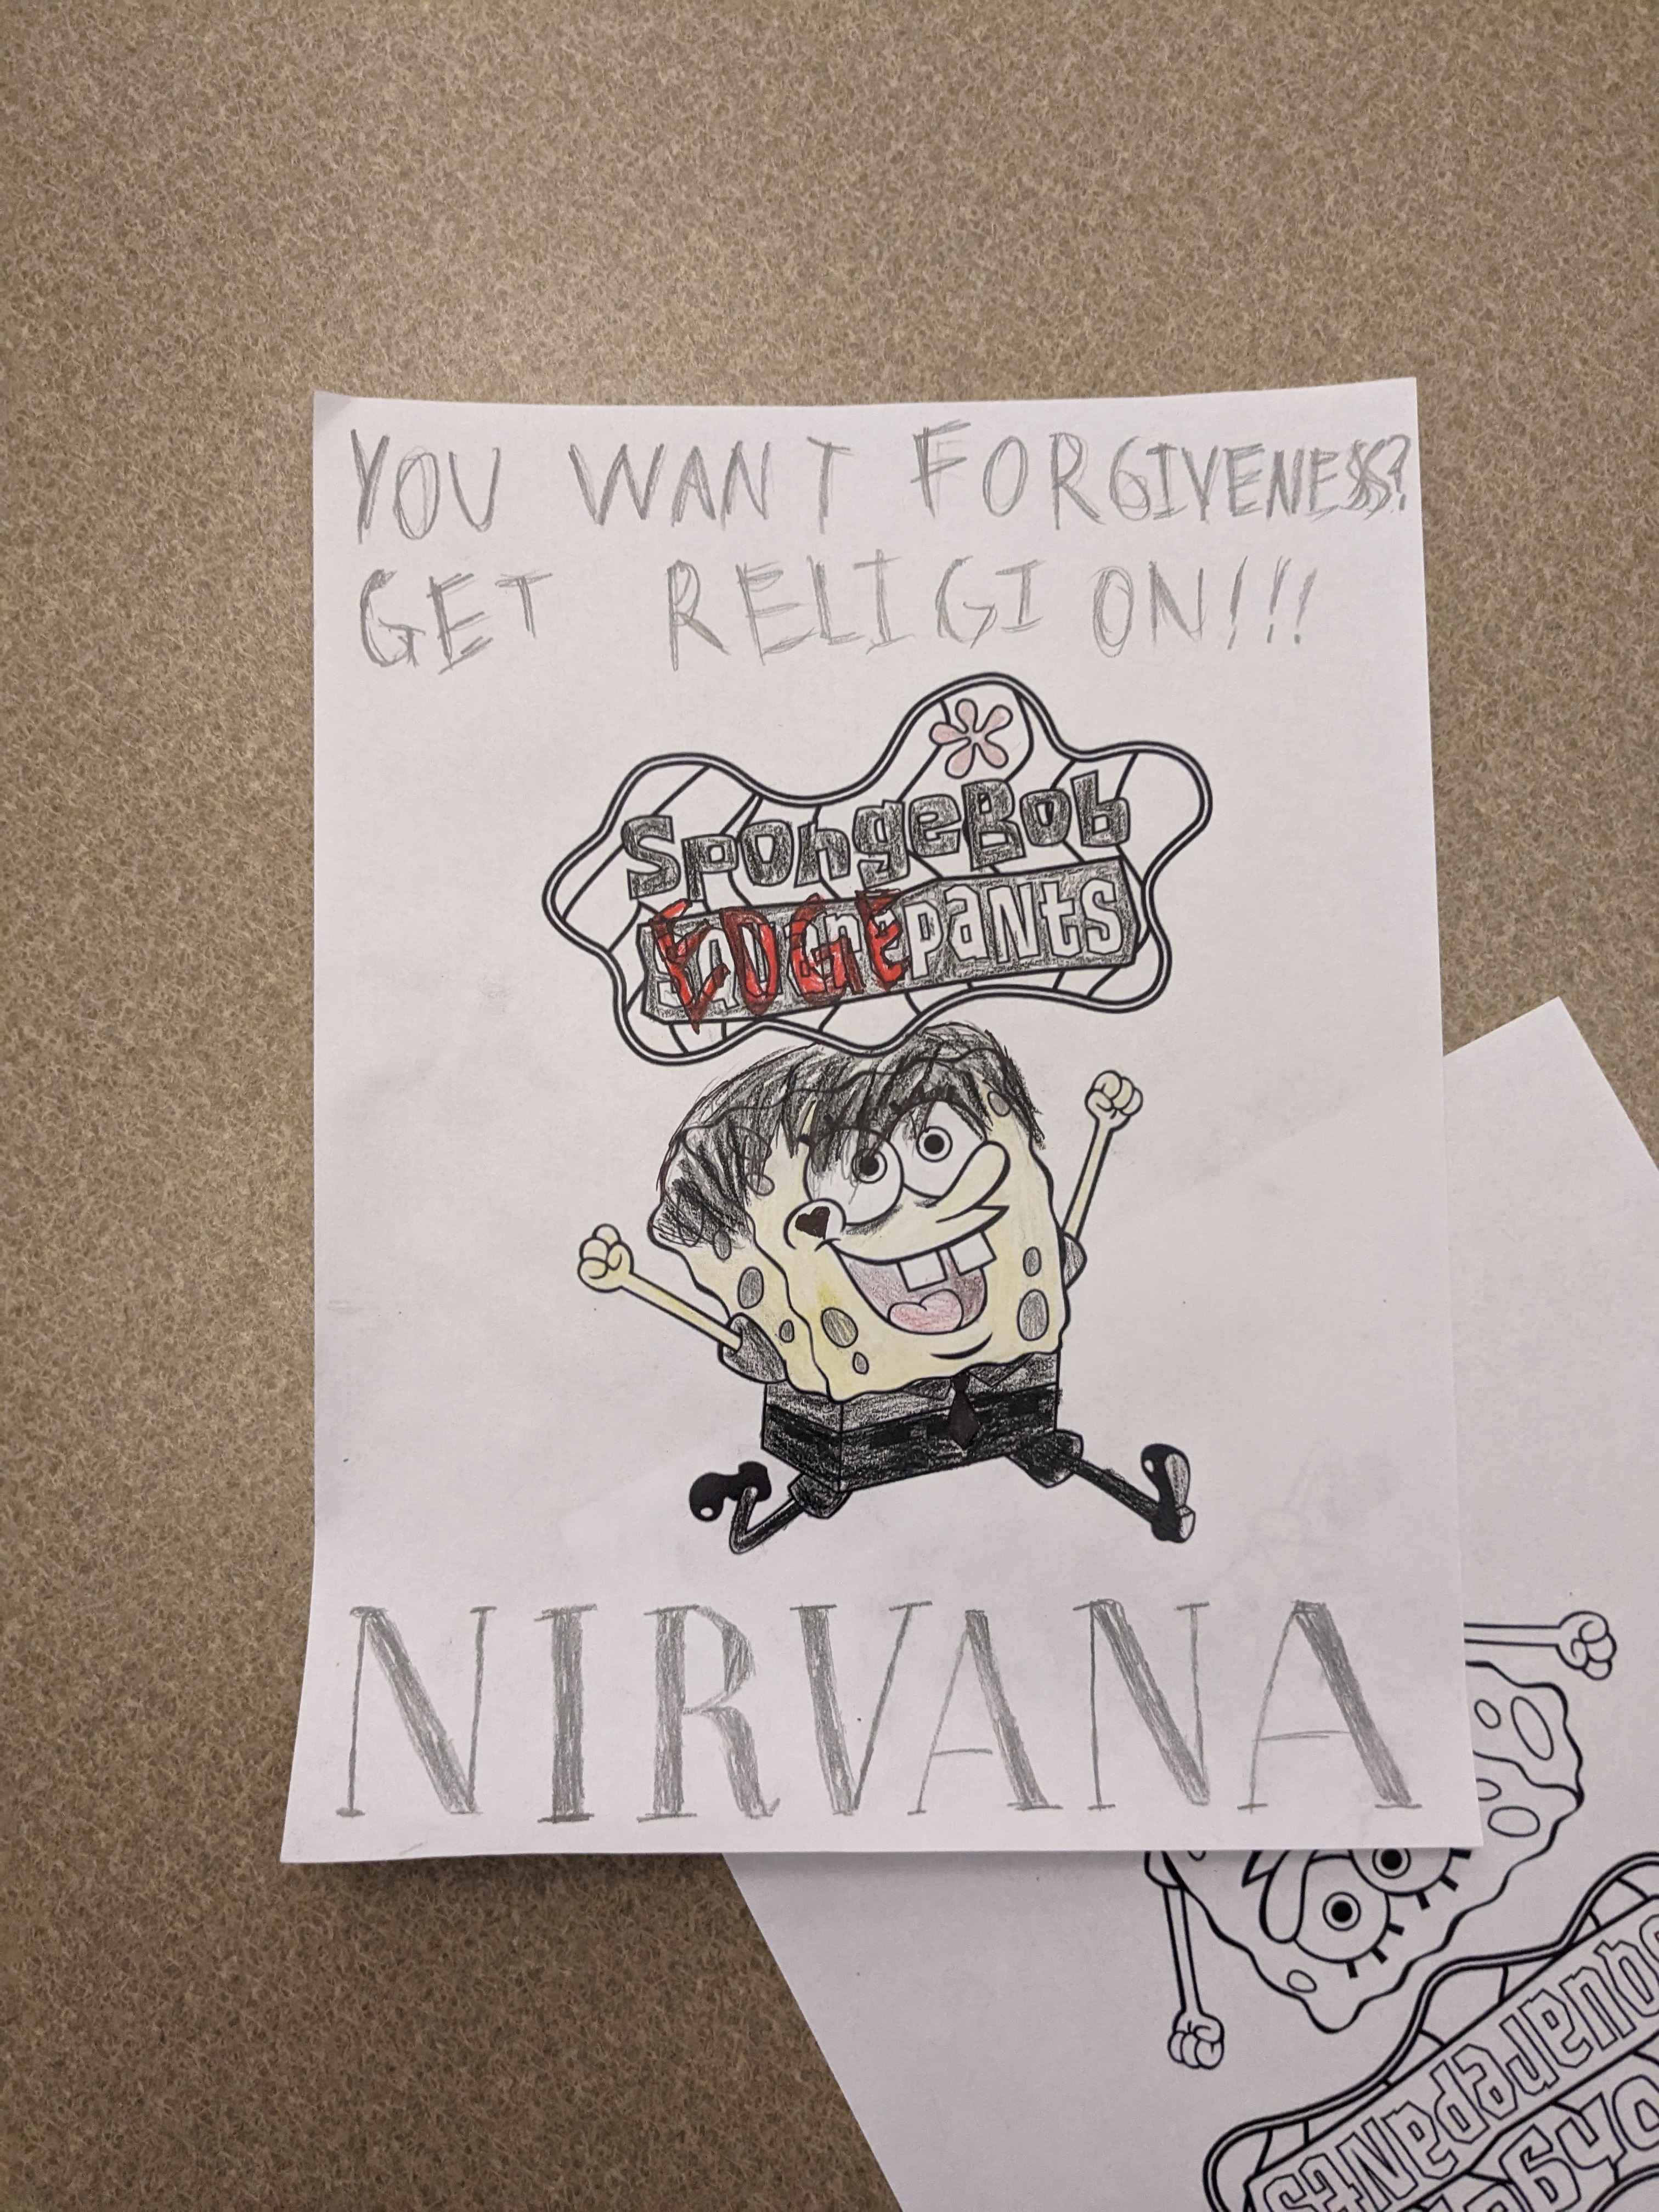 YOU WANT FORGIVENESS?
GET RELIGION!!!
SpongeBob
EDGEpants
NIRVANA
squarepants